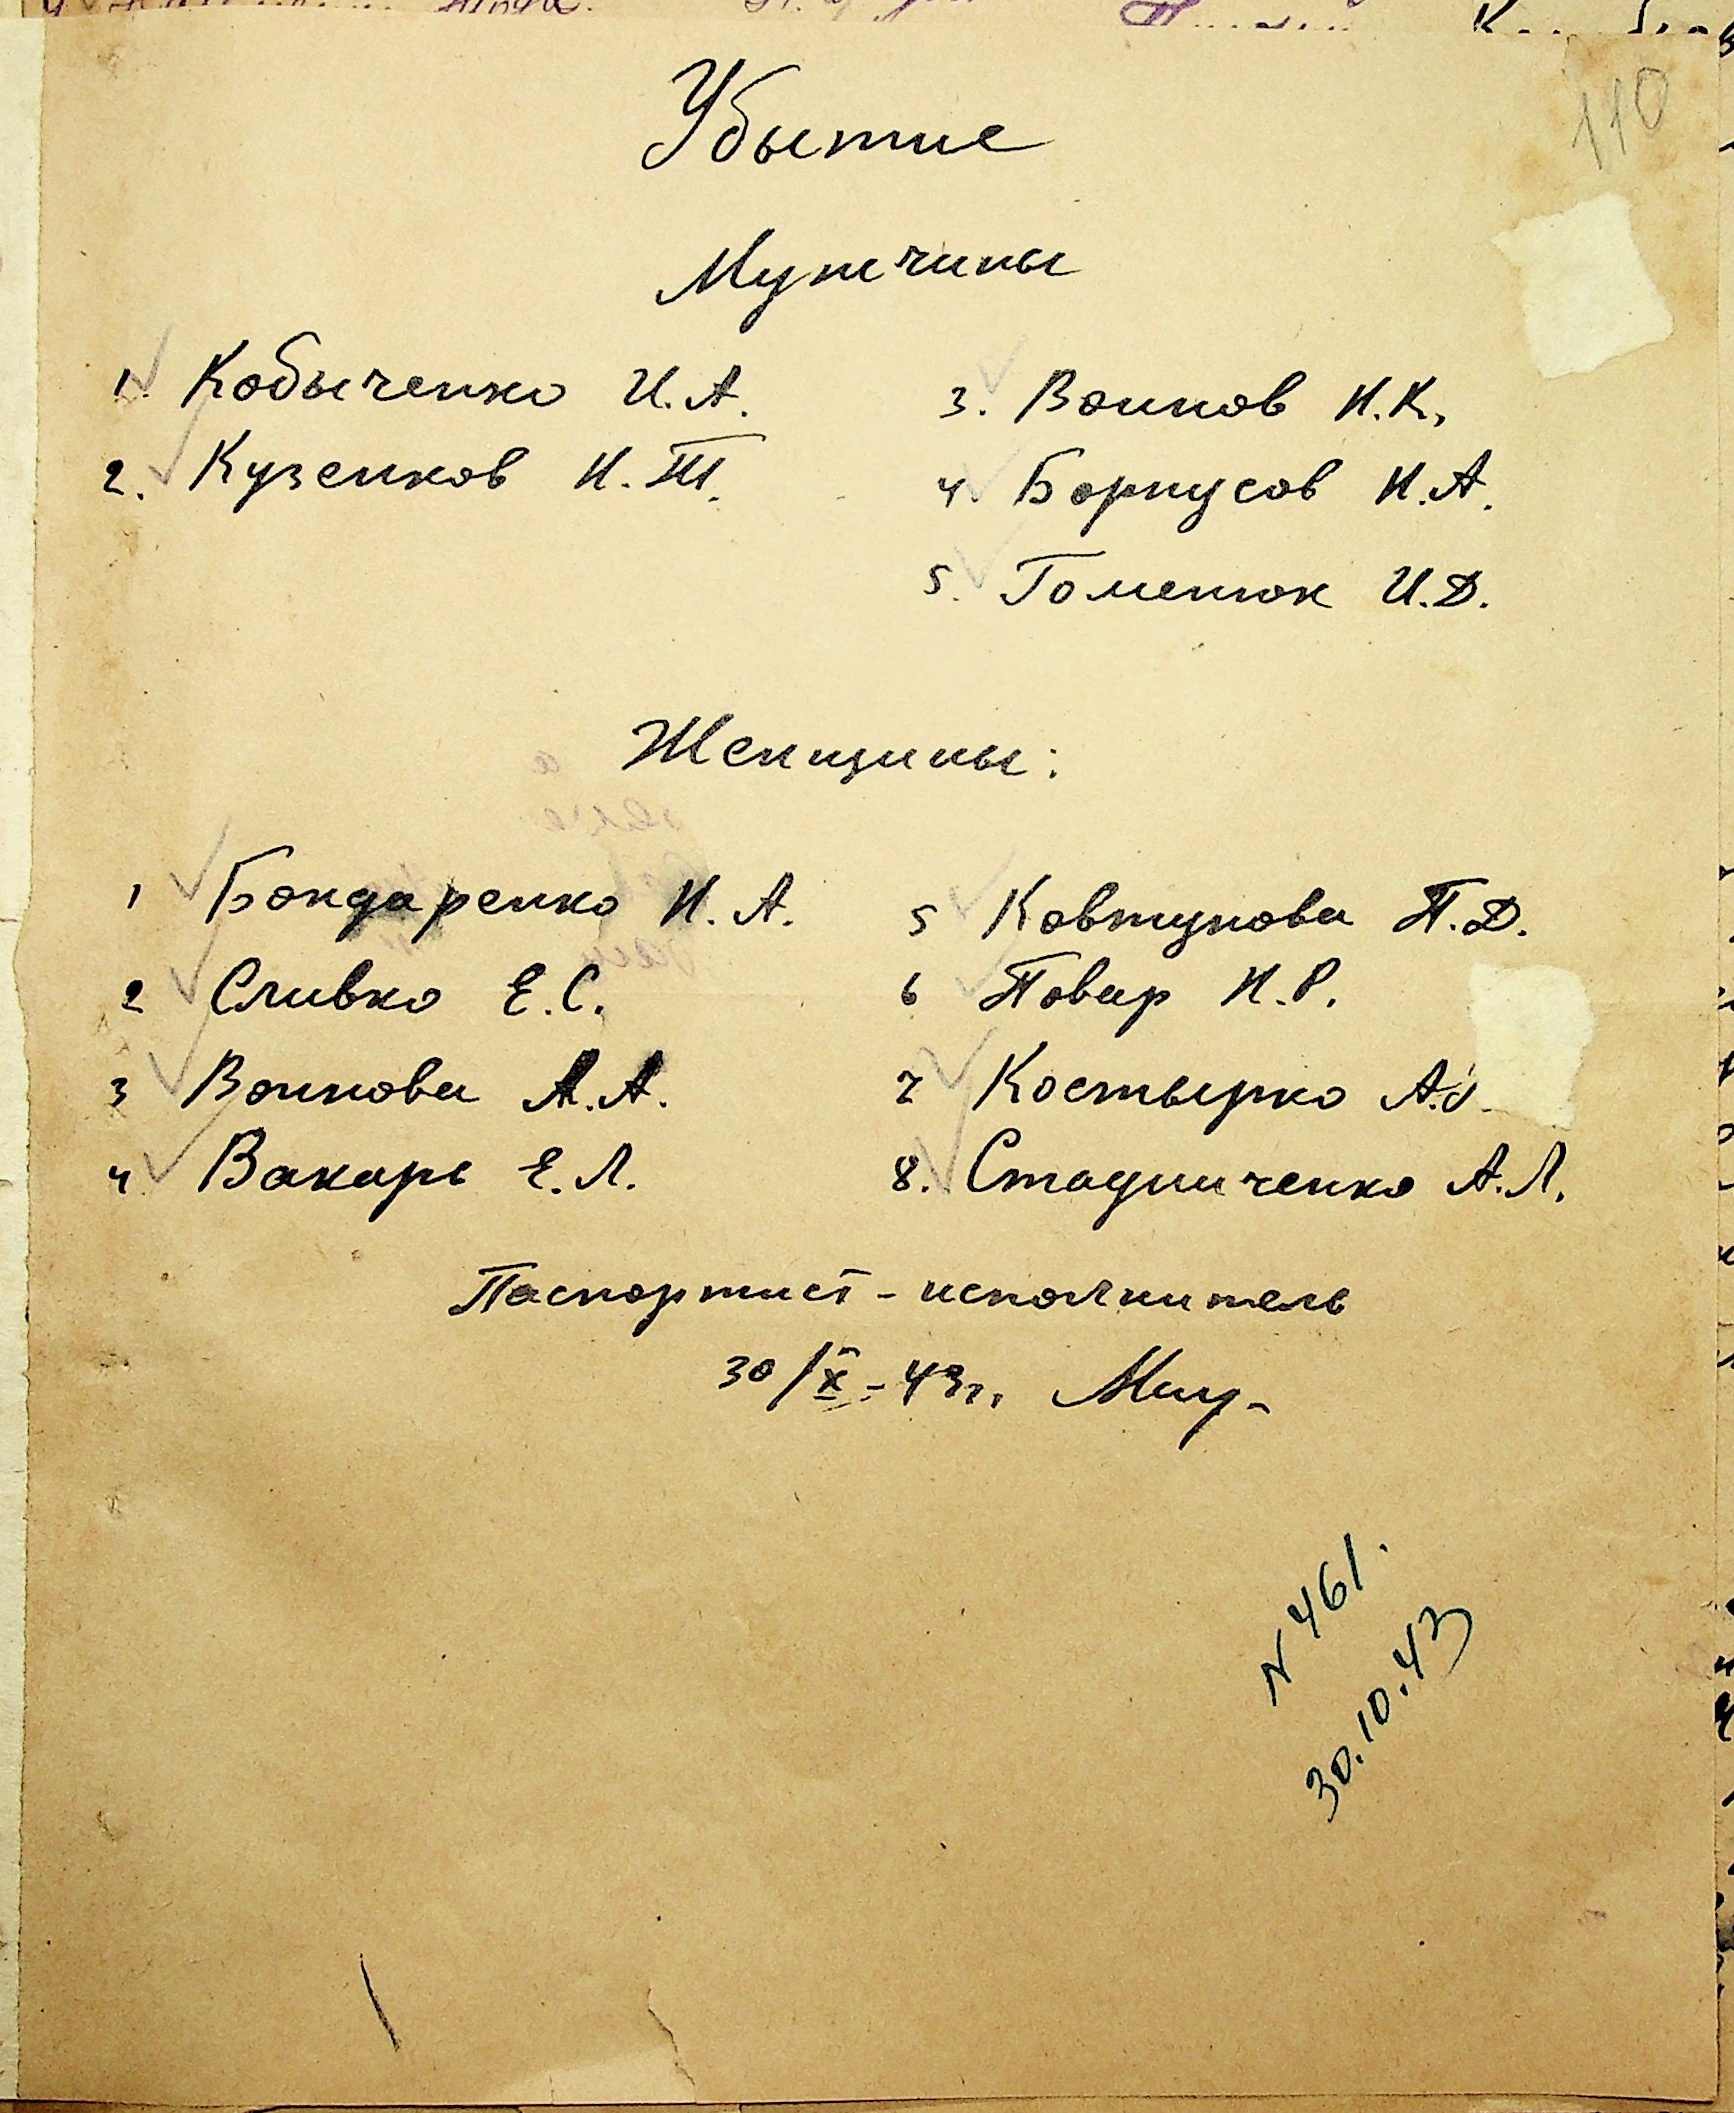 110
Убытие
Мужчины
1. Кобыченко И.А.
2. Кузенков Н.Т.
3. Воинов Н.К.
4. Борнусов Н.А.
5. Гоменюк И.Д.
Женщины:
1 Бондаренко Н.А.
2 Сливко Е.С.
3 Воинова А.А.
4. Вакарь Е.Л.
5 Ковтунова П.Д.
6 Повар Н.Р.
7 Костырко А.
8. Стадниченко А.Л.
Паспортист-исполнитель
30/X-43г.
N 461.
30.10.43